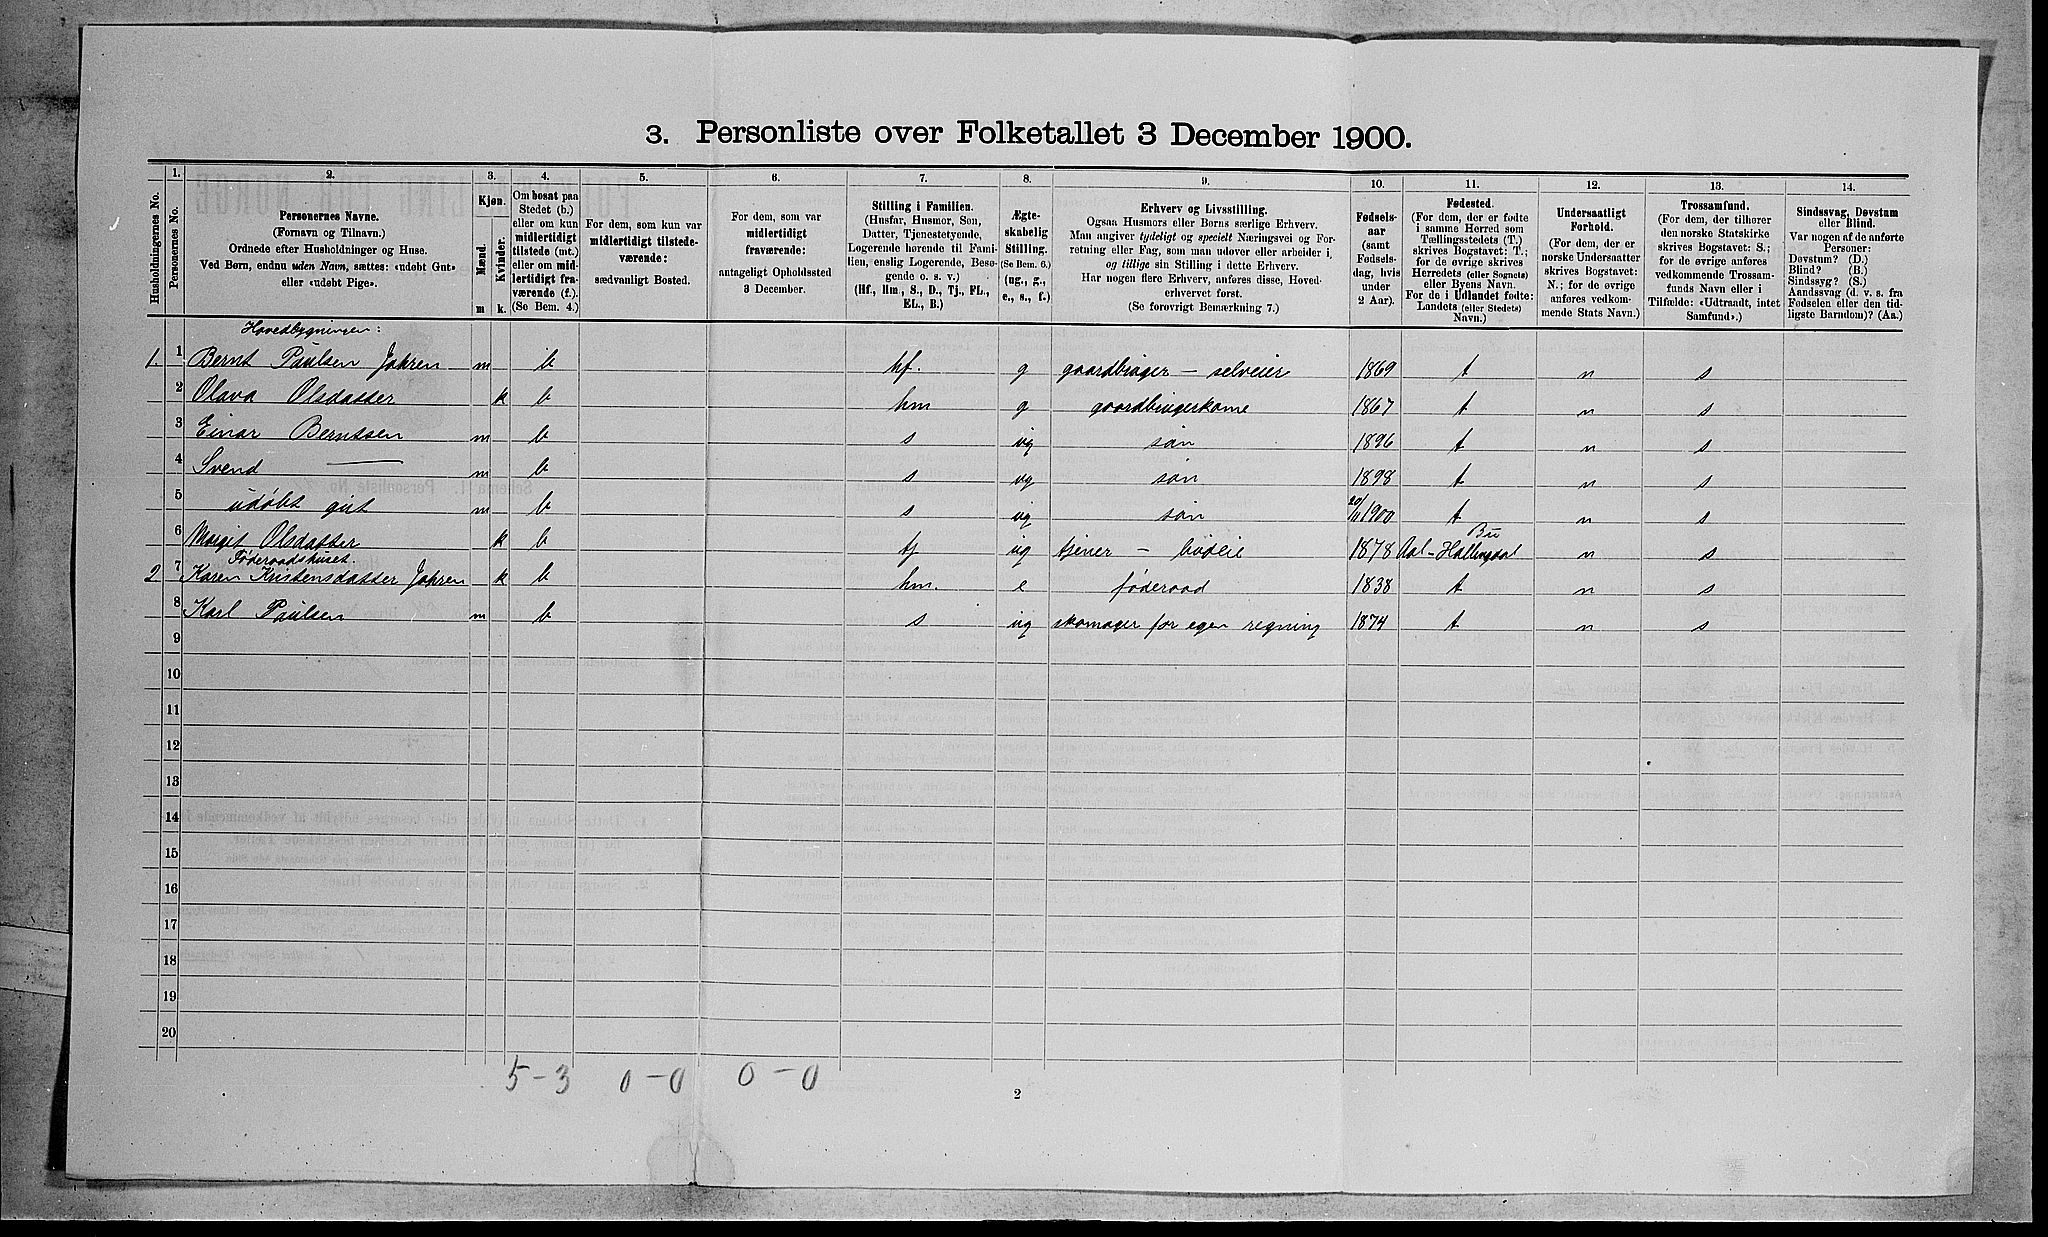 3. Personliste over Folketallet 3 December 1900.
Husholdningernes No.
1. Personernes No.
2. Personernes Navne.
(Fornavn og Tilnavn.)
Ordnede efter Husholdninger og Huse.
Ved Børn, endnu uden Navn, sættes: «udøbt Gut»
eller «udøbt Pige».
3. Kjøn.
Mænd. Kvinder.
m k.
4. Om bosat paa
Stedet (b.)
eller om kun
midlertidigt
tilstede (mt.)
eller om mid-
lertidigt fra-
værende (f.).
(Se Bem. 4.)
5. For dem, som kun var
midlertidigt tilstede-
værende:
sædvanligt Bosted.
6. For dem, som var
midlertidigt
fraværende:
antageligt Opholdssted
3 December.
7. Stilling i Familien.
(Husfar, Husmor, Søn,
Datter, Tjenestetyende,
Logerende hørende til Fami-
lien, enslig Logerende, Besø-
gende o. s. v.)
(Hf., Hm., S., D., Tj., FL.,
EL., B.)
8. Ægte-
skabelig
Stilling.
(Se Bem. 6.)
(ug., g.,
e., s., f.)
9. Erhverv og Livsstilling.
Ogsaa Husmors eller Børns særlige Erhverv.
Man angiver tydeligt og specielt Næringsvei og For-
retning eller Fag, som man udøver eller arbeider i,
og tillige sin Stilling i dette Erhverv.
Har nogen flere Erhverv, anføres disse, Hoved-
erhvervet først.
(Se forøvrigt Bemærkning 7.)
10. Fødsels-
aar
(samt
Fødsels-
dag, hvis
under
2 Aar).
11. Fødested.
(For dem, der er fødte
i samme Herred som
Tællingsstedets (T.)
skrives Bogstavet: T.;
for de øvrige skrives
Herredets (eller Sognets)
eller Byens Navn.
For de i Udlandet fødte:
Landets (eller Stedets)
Navn.)
12. Undersaatligt
Forhold.
(For dem, der er
norske Undersaatter
skrives Bogstavet:
N.; for de øvrige
anføres vedkom-
mende Stats Navn.)
13. Trossamfund.
(For dem, der tilhører
den norske Statskirke
skrives Bogstavet: S.;
for de øvrige anføres
vedkommende Trossam-
funds Navn eller i
Tilfælde: «Udtraadt, intet
Samfund».)
14. Sindssvag, Døvstum
eller Blind.
Var nogen af de anførte
Personer:
Døvstum? (D.)
Blind? (B.)
Sindssyg? (S.)
Aandssvag (d. v. s. fra
Fødselen eller den tid-
ligste Barndom)? (Aa.)
Hovedbygningen:
1. 1 Bernt Paulsen Jahren m b hf. g gaardbruger – selveier 1869 t n s
2 Olava Olsdatter k b hm g gaardbrugerkone 1867 t n s
3 Einar Berntsen m b s ug søn 1896 t n s
4 Svend — m b s ug søn 1898 t n s
5 udøbt gut m b s ug søn 20/11 1900 t n s
6 Margit Olsdatter k b tj ug tjener – budeie 1878 Aal – Hallingdal Bu n s
Føderaadshuset.
2 7 Karen Kristensdatter Jahren k b hm. e føderaad 1838 t n s
8 Karl Paulsen m b s ug skomager for egen regning 1874 t n s
9
10
11
12
13
14
15
16
17
18
19
20
5 – 3 0 – 0 0 – 0
2